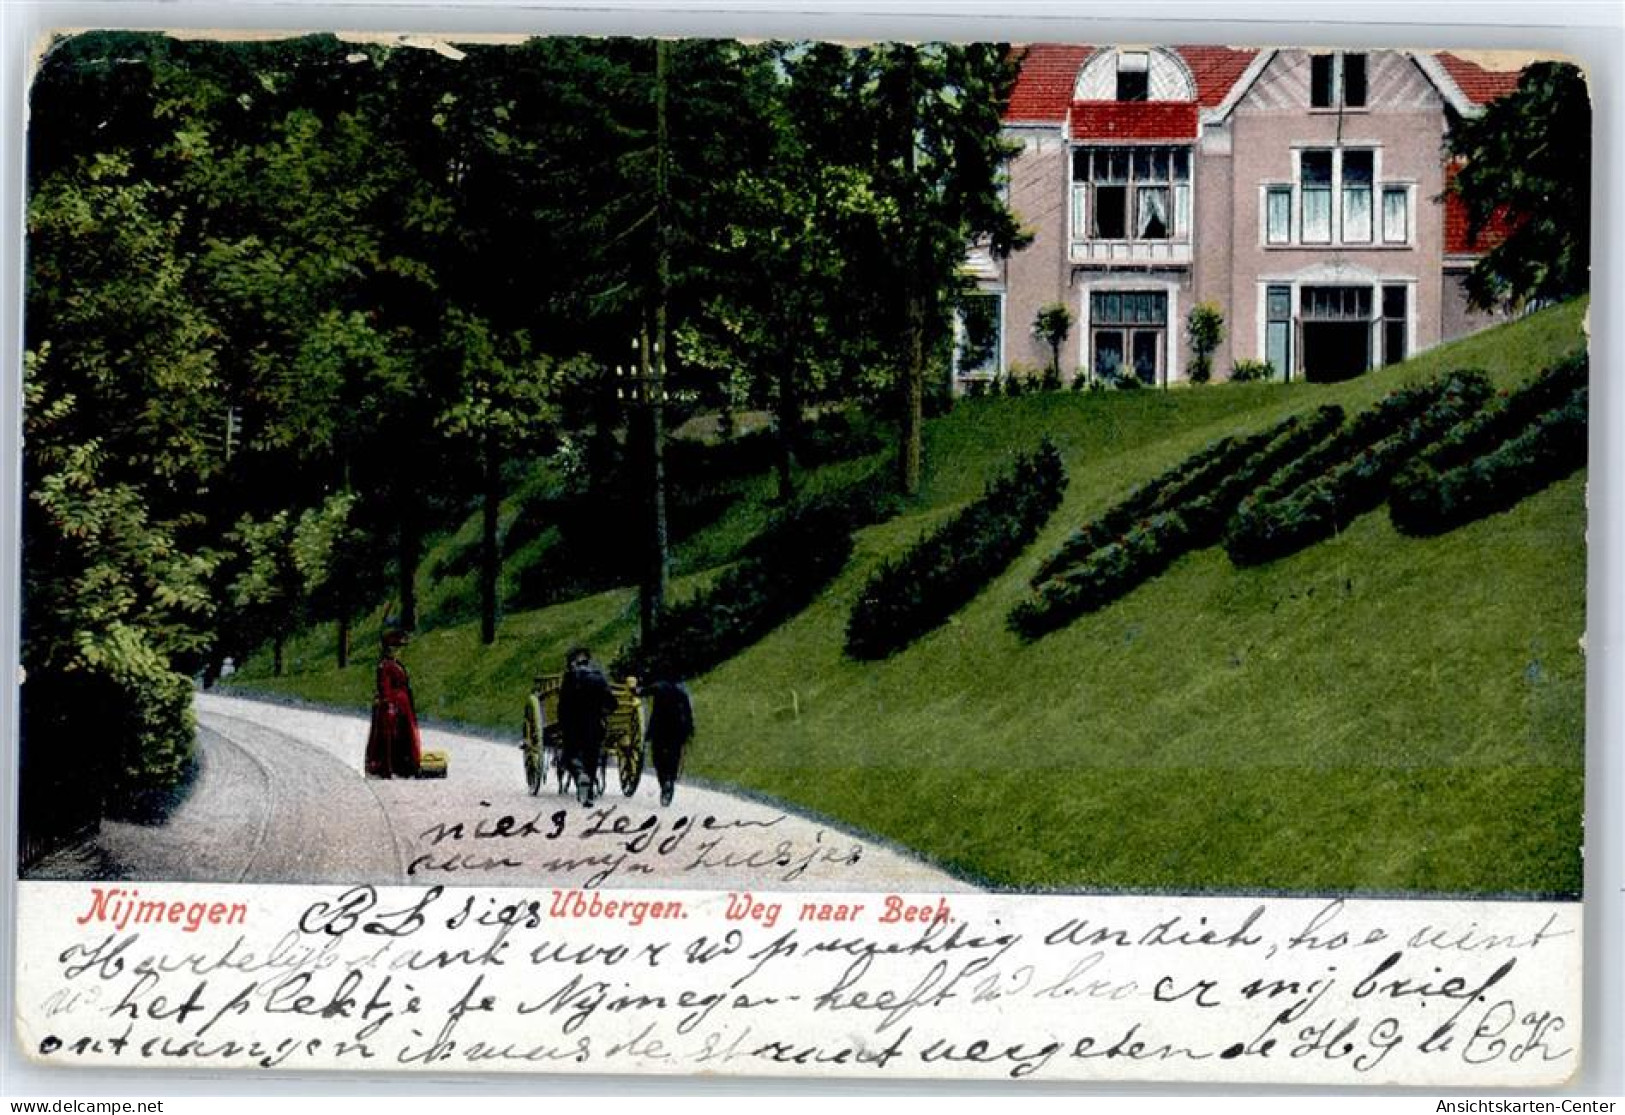 niets zeggen
aan mijn zusjes
Nijmegen Ubbergen. Weg naar Beek.
BL sies
Hartelijk dank voor uw prachtig anzich, hoe vint
uw het plektje te Nijmegen heeft uw broer mij brief
ontvangen ik was de straat vergeten de H G u E K
Ansichtskarten-Center